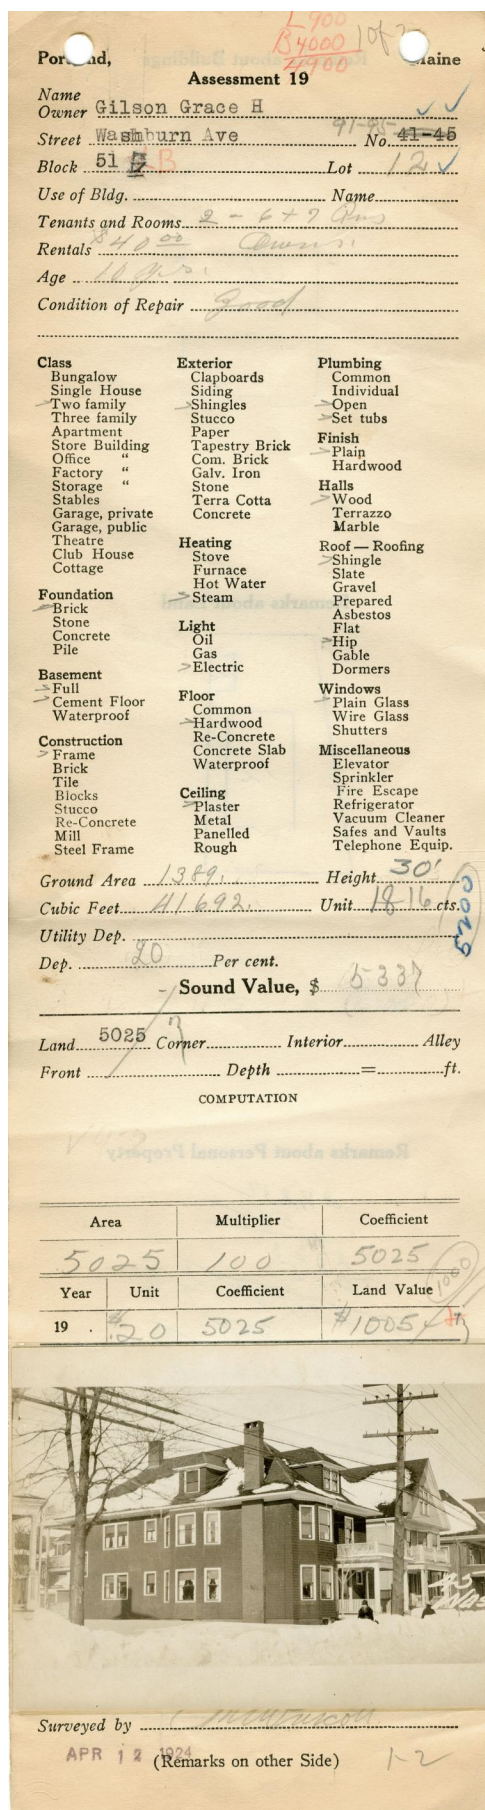 L 900
B 4000
4900
1 of 2
Portland, Maine
Assessment 19
Name
Owner Gilson Grace H
Street Washburn Ave 91-95 No. 41-45
Block 51 B Lot 12
Use of Bldg. Name
Tenants and Rooms 2 - 6 + 7 Rms
Rentals $40.00 Owns.
Age 10 yrs.
Condition of Repair good
Class
Bungalow
Single House
Two family
Three family
Apartment
Store Building
Office "
Factory "
Storage "
Stables
Garage, private
Garage, public
Theatre
Club House
Cottage
Foundation
Brick
Stone
Concrete
Pile
Basement
Full
Cement Floor
Waterproof
Construction
Frame
Brick
Tile
Blocks
Stucco
Re-Concrete
Mill
Steel Frame
Exterior
Clapboards
Siding
Shingles
Stucco
Paper
Tapestry Brick
Com. Brick
Galv. Iron
Stone
Terra Cotta
Concrete
Heating
Stove
Furnace
Hot Water
Steam
Light
Oil
Gas
Electric
Floor
Common
Hardwood
Re-Concrete
Concrete Slab
Waterproof
Ceiling
Plaster
Metal
Panelled
Rough
Plumbing
Common
Individual
Open
Set tubs
Finish
Plain
Hardwood
Halls
Wood
Terrazzo
Marble
Roof — Roofing
Shingle
Slate
Gravel
Prepared
Asbestos
Flat
Hip
Gable
Dormers
Windows
Plain Glass
Wire Glass
Shutters
Miscellaneous
Elevator
Sprinkler
Fire Escape
Refrigerator
Vacuum Cleaner
Safes and Vaults
Telephone Equip.
Ground Area 1389. Height 30'
Cubic Feet 41692. Unit 18 16 cts.
Utility Dep.
Dep. 20 Per cent.
Sound Value, $ 5337
Land 5025 Corner Interior Alley
Front Depth = ft.
COMPUTATION
Area Multiplier Coefficient
5025 100 5025
1000
Year Unit Coefficient Land Value
19 . $.20 5025 $1005
Surveyed by
APR 12 1924
(Remarks on other Side) 1-2